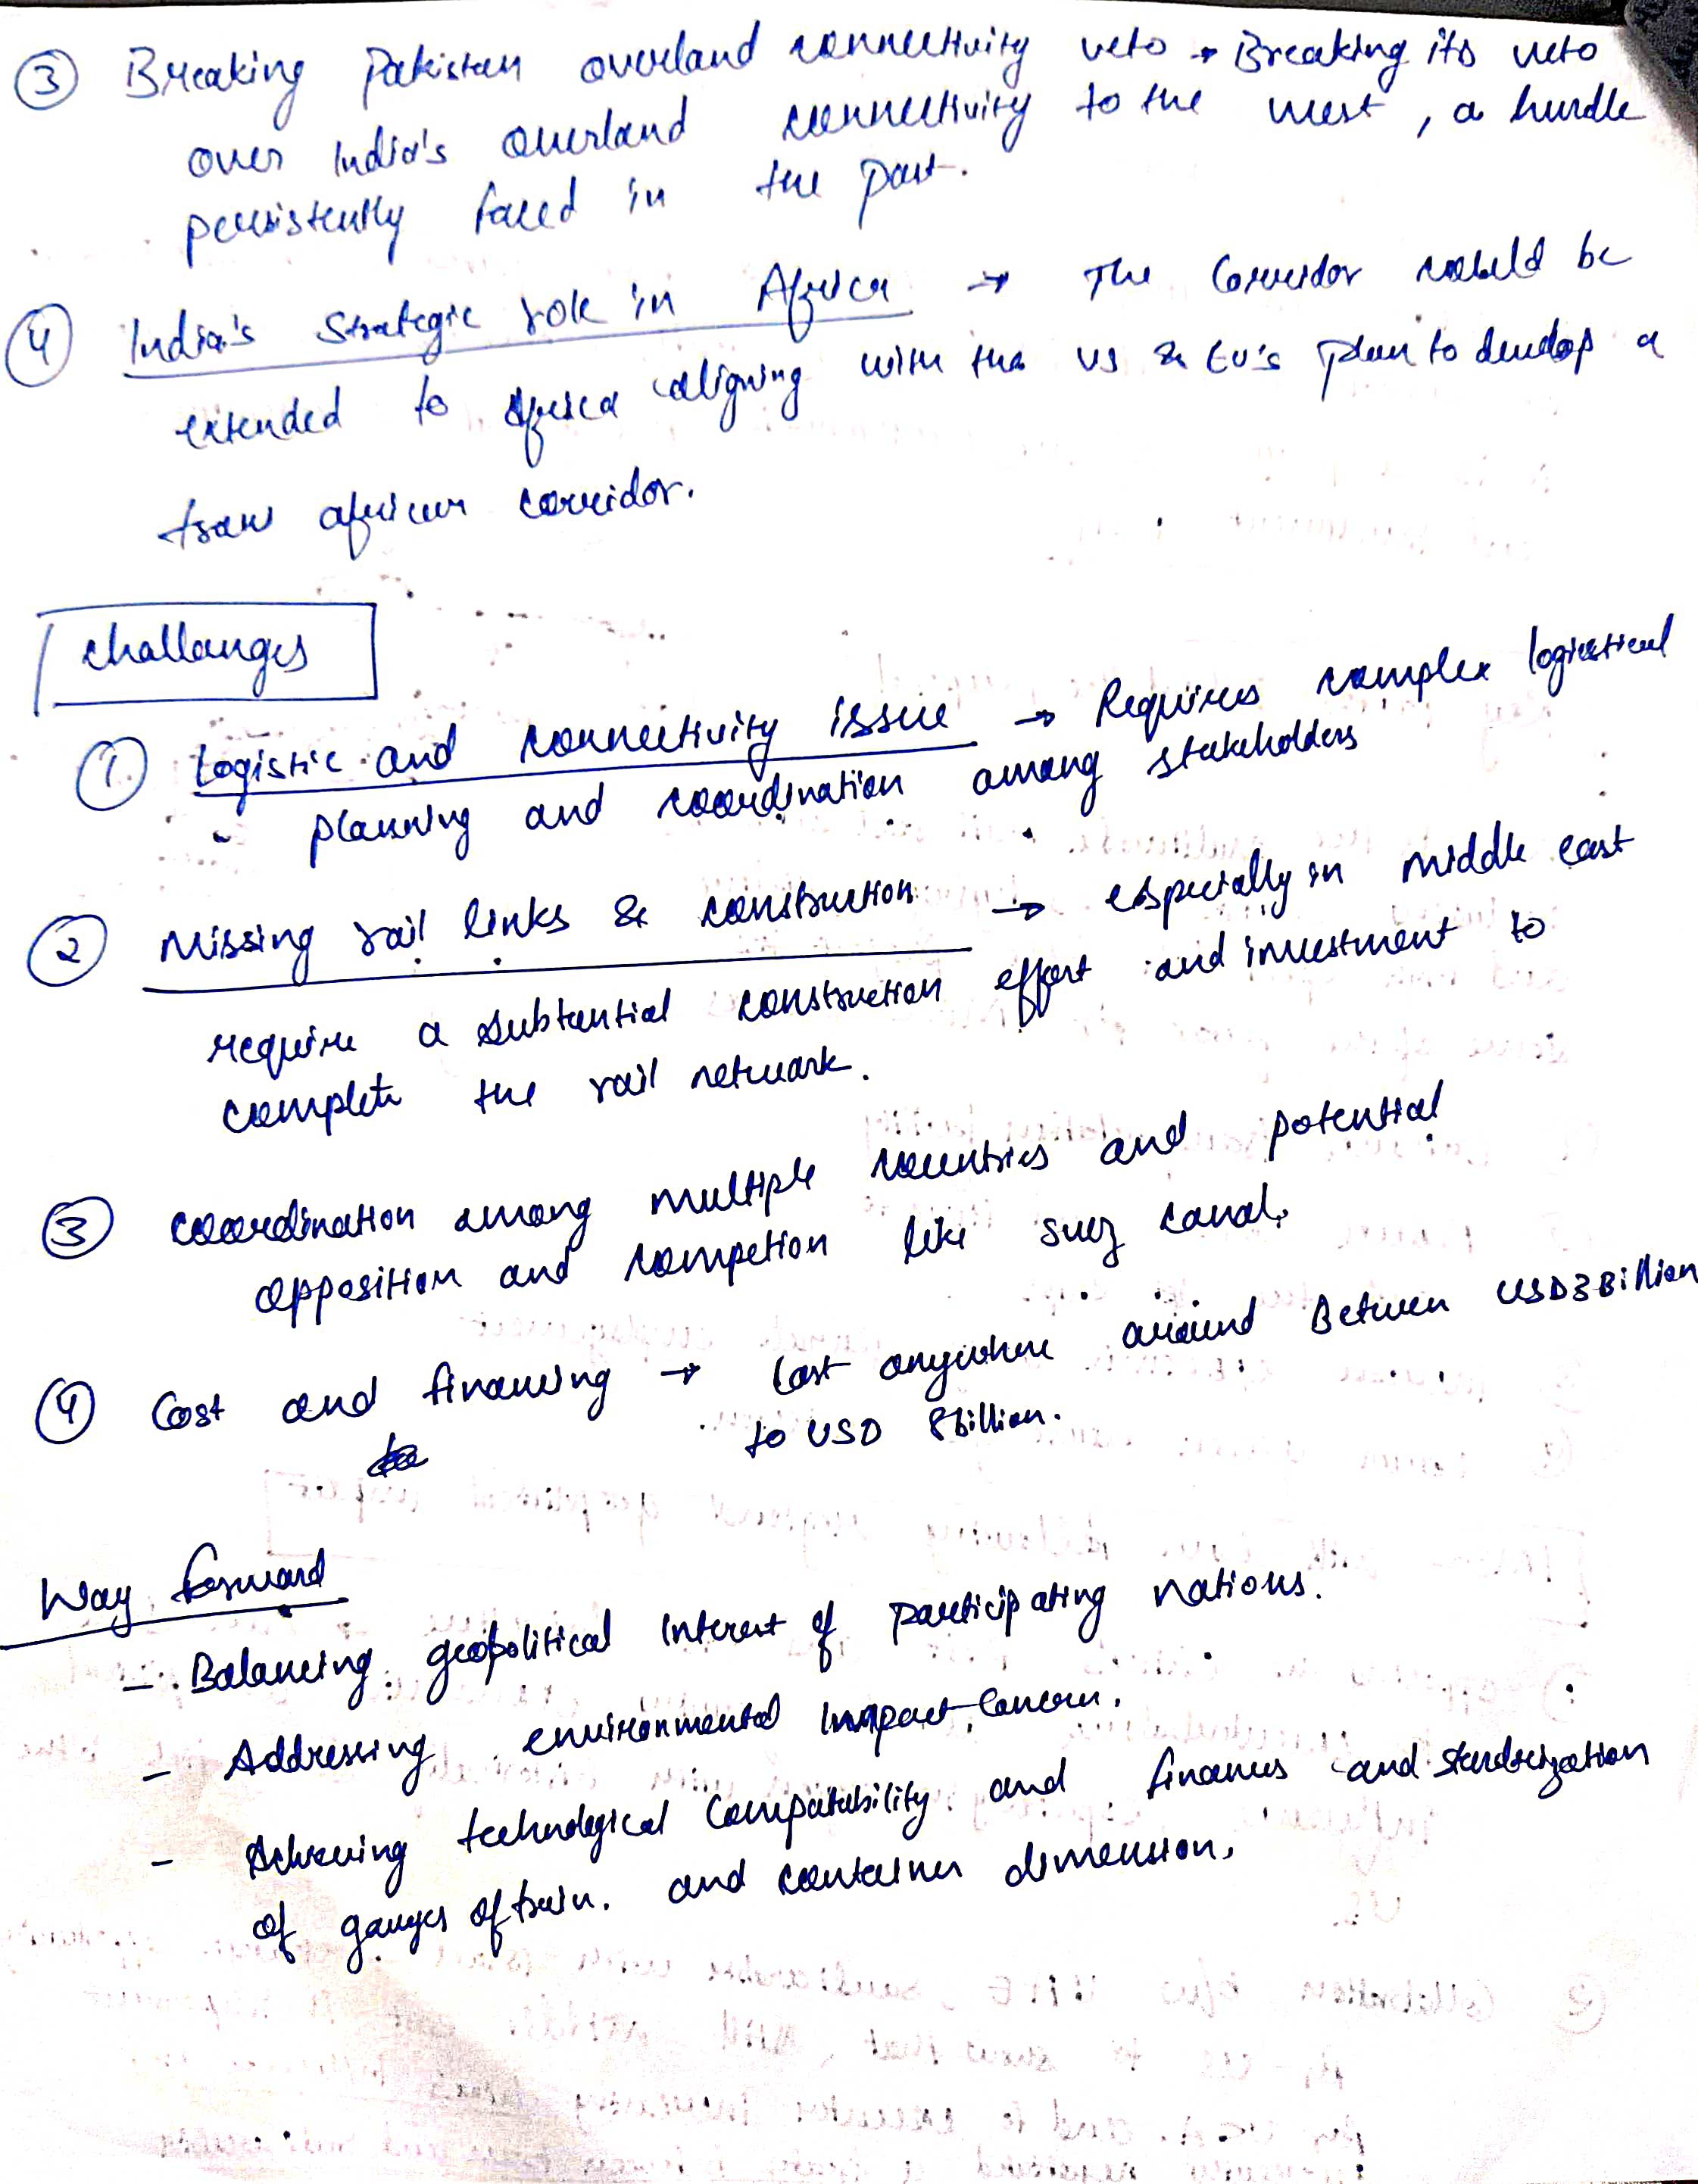 ③ Breaking Pakistan overland connectivity veto → Breaking its veto
over India's overland connectivity to the west, a hurdle
persistently faced in the past.
④ India's Strategic role in Africa → The Corridor could be
extended to Africa aligning with the US & EU's plan to develop a
trans african corridor.
Challanges
① Logistic and connectivity issue → Requires complex logistical
planning and coordination among stakeholders
② Missing rail links & construction → especially in middle east
require a substantial construction effort and investment to
complete the rail network.
③ coordination among multiple countries and potential
opposition and competion like suez canal.
④ Cost and financing → Cost anywhere around Between USD 3 Billion
to USD 8 billion.
Way forward
- Balancing geopolitical Interest of participating nations.
- Addressing environmental Impact Concern.
- Achieving technological Compatability and finances and
of gauges of train. and container dimension.